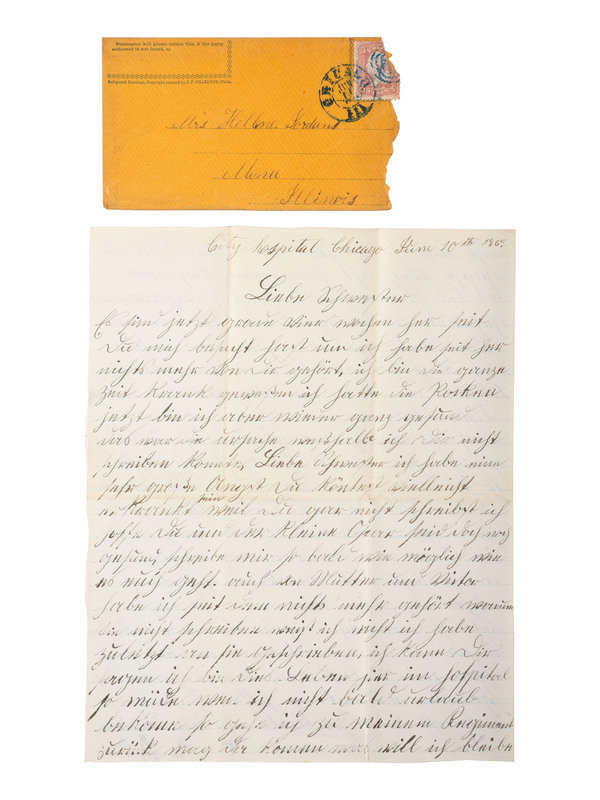 Postmaster will please return this, if the party
addressed is not found, to
Safeguard Envelope, Copyright secured by J. P. CHARLTON, Phila.
CHICAGO
Ill
Mrs
Illinois
City hospital Chicago June 10 th 1863
Liebe Schwester
Es sin jetzt grade vier wochen her seit
Du mich besucht hast un ich habe seit her
nichts mehr von Dir gehört, ich bin die ganze
zeit krank geweßen ich hatte die Pocken
jetzt bin ich aber wieder ganz gesund
das war die ursache weßhalb ich Dir nicht
schreiben konnte, Liebe Schwester ich habe eine
sehr große Angst Du köntest vielleicht
erkrankt sein weil Du gar nicht schreibst ich
hoffe Du un der kleine Oscar seid doch noch
gesund, schreibe mir so bald wie möglich wie
es euch geht. auch von Mutter un Victor
habe ich seit dem nichts mehr gehört warum
sie nicht schreiben weiß ich nicht ich habe
zuletzt an sie geschrieben, ich kann Dir
sagen ich bin dies Leben hier im hospital
so müde wen ich nicht bald urlaub
bekome so gehe ich zu meinem Regiment
zurück mag da komen was will ich bleibe